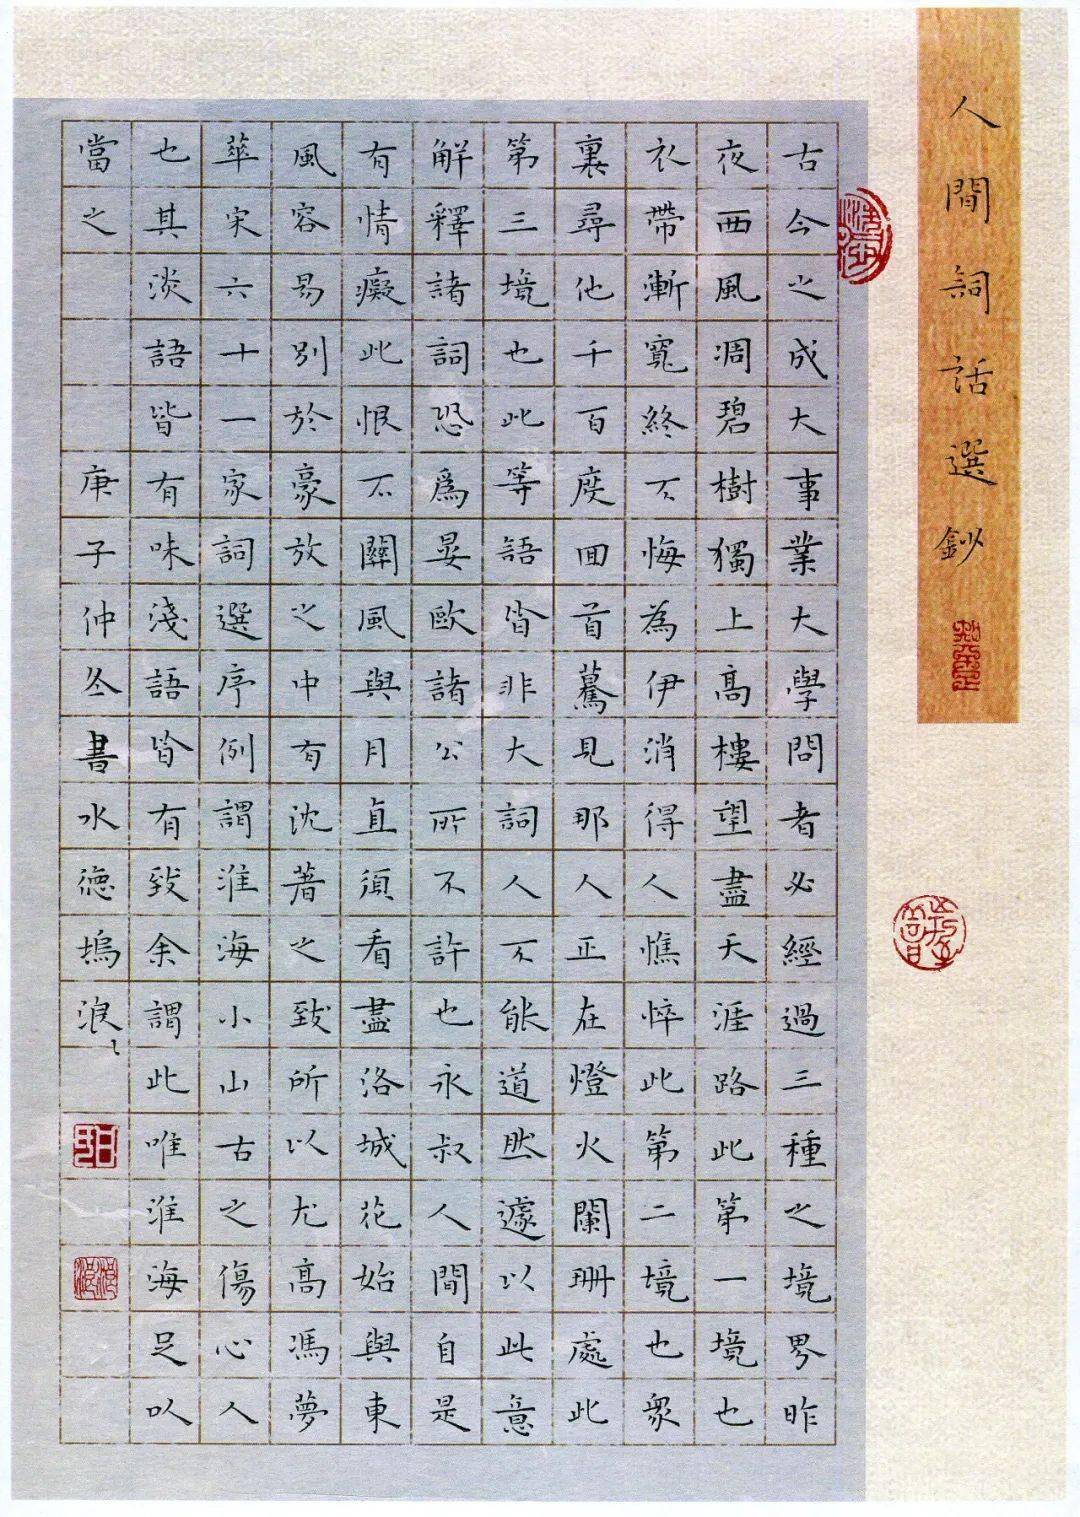 人間詞話選鈔
古今之成大事業大學問者必經過三種之境界昨
夜西風凋碧樹獨上高樓望盡天涯路此第一境也
衣帶漸寬終不悔為伊消得人憔悴此第二境也眾
裏尋他千百度回首驀見那人正在燈火闌珊處此
第三境也此等語皆非大詞人不能道然遽以此意
解釋諸詞恐爲晏歐諸公所不許也永叔人間自是
有情癡此恨不關風與月直須看盡洛城花始與東
風容易別於豪放之中有沈著之致所以尤高馮夢
華宋六十一家詞選序例謂淮海小山古之傷心人
也其淡語皆有味淺語皆有致余謂此唯淮海足以
當之 庚子仲冬書水德塢浪〻